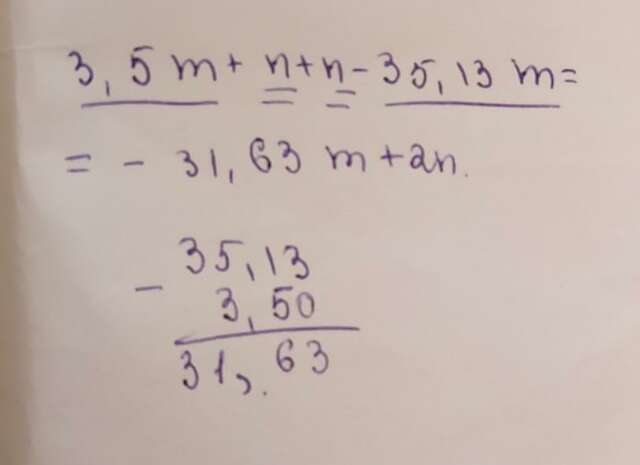 3,5 m + n + n - 35,13 m =
= - 31,63 m + 2n.
35,13
-
3,50
31,63